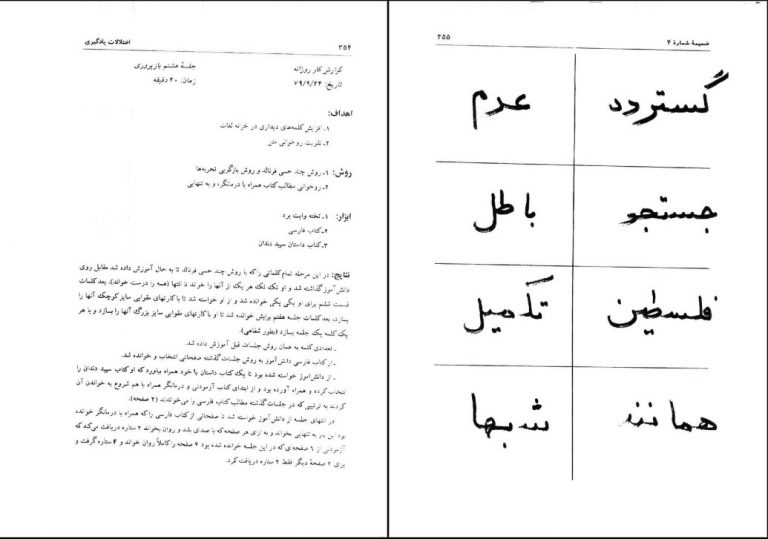 ۳۵۴ اختلالات یادگیری
گزارش کار روزانه جلسهٔ هشتم بازپروری
تاریخ: ۷۹/۹/۲۴ زمان: ۴۰ دقیقه
اهداف:
۱ـ افزایش کلمه‌های دیداری در خزانه لغات
۲ـ تقویت روخوانی متن
روش: ۱ـ روش چند حسی فرنالد و روش بازگویی تجربه‌ها
۲ـ روخوانی مطالب کتاب همراه با درمانگر، و به تنهایی
ابزار: ۱ـ تخته وایت برد
۲ـ کتاب فارسی
۳ـ کتاب داستان سپید دندان
نتایج: در این مرحله تمام کلماتی را که با روش چند حسی فرنالد تا به حال آموزش داده شد مقابل روی
دانش‌آموز گذاشته شد و او تک تک هر یک از آنها را خواند تا انتها (همه را درست خواند). بعد کلمات
قسمت ششم برای او یکی یکی خوانده شد و از او خواسته شد تا با کارتهای مقوایی سایز کوچک آنها را
بسازد، بعد کلمات جلسه هفتم برایش خوانده شد تا او با کارتهای مقوایی سایز بزرگ آنها را بسازد و با هر
یک کلمه یک جمله بسازد (بطور شفاهی).
ـ تعدادی کلمه به همان روش جلسات قبل آموزش داده شد.
ـ از کتاب فارسی دانش‌آموز به روش جلسات گذشته صفحاتی انتخاب و خوانده شد.
ـ از دانش‌آموز خواسته شده بود تا یک کتاب داستان با خود همراه بیاورد که او کتاب سپید دندان را
انتخاب کرده و همراه آورده بود و از ابتدای کتاب آزمودنی و درمانگر همراه با هم شروع به خواندن آن
کردند به ترتیبی که در جلسات گذشته مطالب کتاب فارسی را می‌خواندند (۲ صفحه).
در انتهای جلسه از دانش‌آموز خواسته شد تا صفحاتی از کتاب فارسی را که همراه با درمانگر خوانده
بود این بار به تنهایی بخواند و به ازای هر صفحه که با صدای بلند و روان بخواند ۲ ستاره دریافت می‌کند که
آزمودنی از ۶ صفحه‌ای که در این جلسه خوانده شده بود ۴ صفحه را کاملاً روان خواند و ۴ ستاره گرفت و
برای ۲ صفحهٔ دیگر فقط ۲ ستاره دریافت کرد.
ضمیمهٔ شمارهٔ ۴ ۳۵۵
گسترده عدم
جستجو باطل
فلسطین تکمیل
همانند شبها